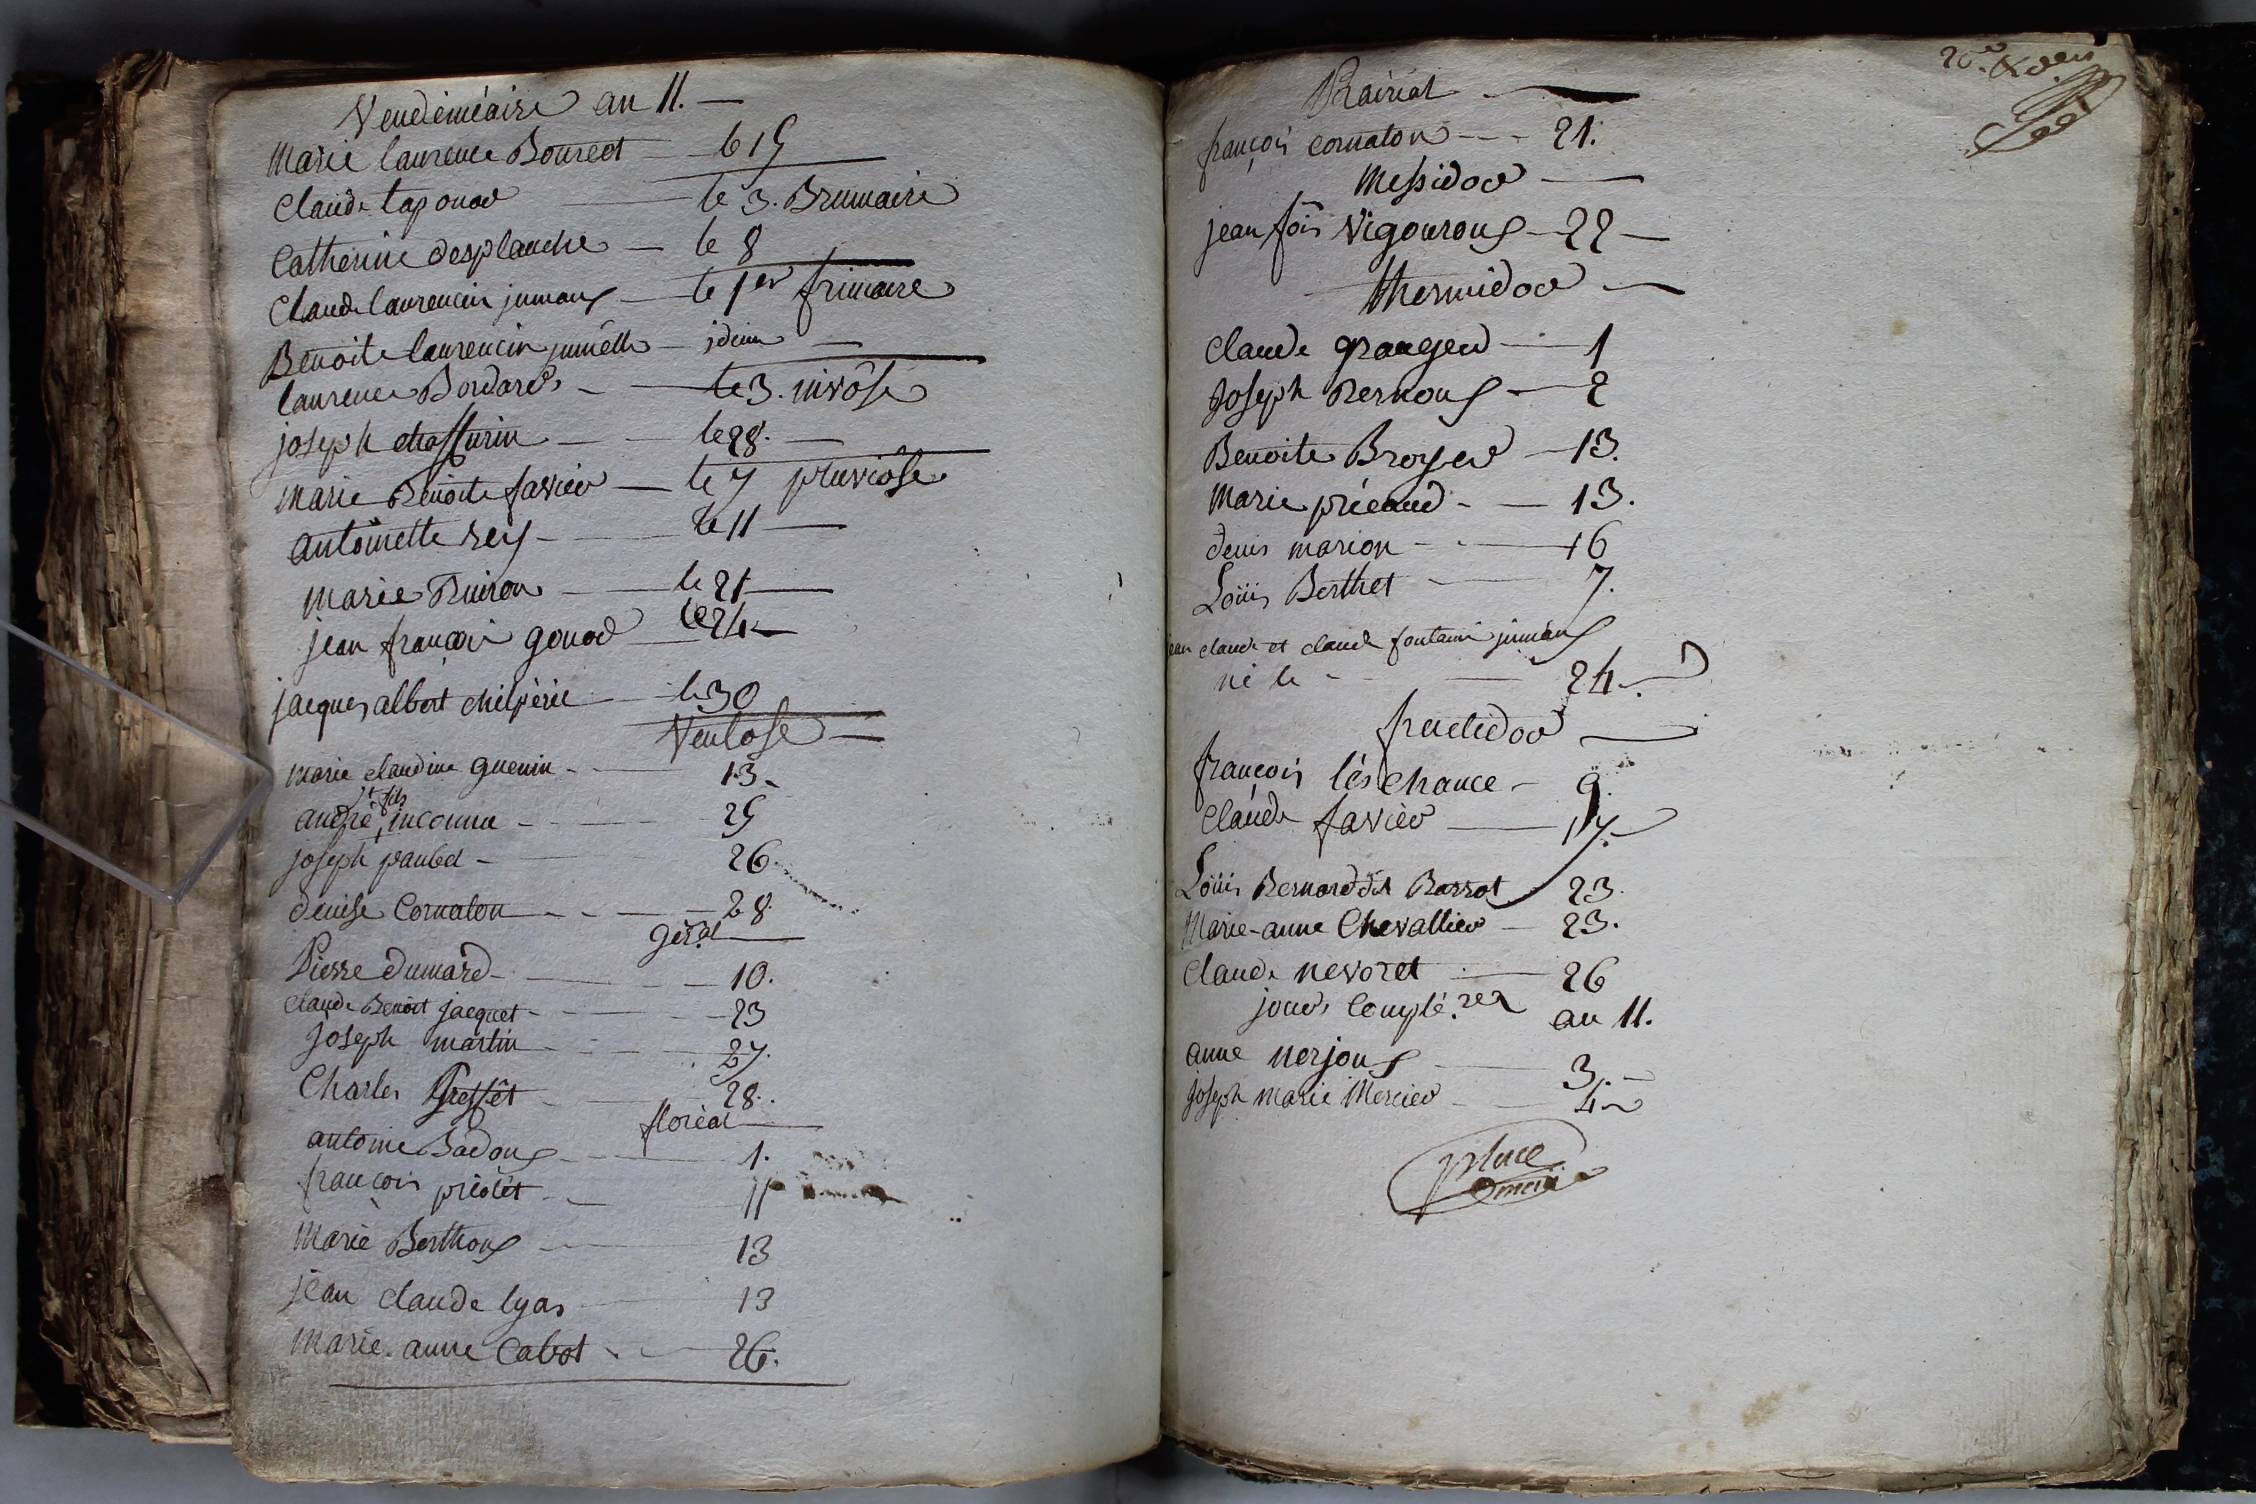 Vendéméaire an 11. —
Marie laurence Bourcet — le 15
Claude taponod — le 3. Brumaire
Catherine desplanche — le 8
Claude laurencin jumaux — le 1er frimaire
Benoite laurencin jumelle — idem —
laurence Bordard — le 3. nivôse
joseph chossurin — le 28. —
Marie Benoite favier — le 7 pluviôse
antoinette rey — le 11 —
Marie Buiron — le 21 —
jean françois gonod — le 24 —
jacques albert chilpéric — le 30
Ventose —
marie claudine guenin — 13.
st fils
andré, inconnu — 25
joseph paubel — 26.
denise Cornaton — 28.
gер.al —
Pierre dumard — 10.
claude Benoit jacquet — 23
Joseph martin — 27.
Charles — 28.
floréal —
antoine Badoux — 1.
françois prèolét — 11
Marie Berthoux — 13
jean claude lyas — 13
Marie-anne Cabot — 26.
20.e
Prairial —
françois cornaton — 21.
Messidor —
jean fois Vigouroux — 22 —
thermidor —
Claude granger — 1
Joseph Pernoux — 2
Benoite Broyer — 13.
Marie — 13.
denis marion — 16
Loüis Berthet — 7.
jean claude et claude fontaine jumeaux
né le — 24.
fructidor —
françois léschance — 9.
Claude favier — 17.
Loüis Bernard dit Barrot — 23.
Marie-anne Chevallier — 23.
Claude nevoret — 26
jours Complé.res an 11.
anne nerjoux — 3.
Joseph marie Mercier — 4